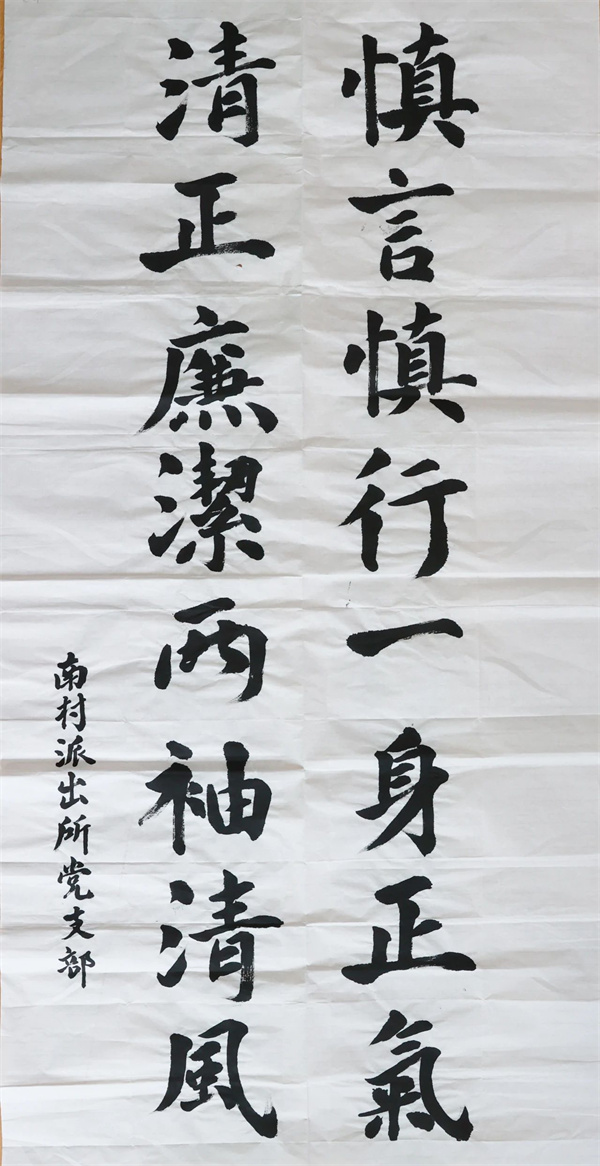 慎言慎行一身正氣
清正廉潔两袖清風
南村派出所党支部